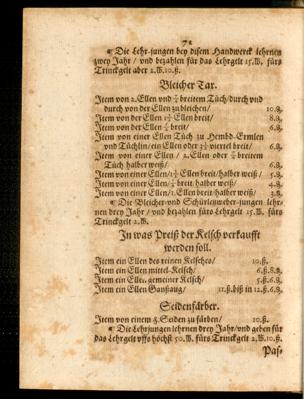 72
¶ Die Lehr-jungen bey disem Handwerck lehrnen
zwey Jahr / und bezahlen für das Lehrgelt 15.W. fürs
Trinckgelt aber 2.W.10.ß.
Bleicher Tax.
Item von 2.Ellen und breitem Tüch/durch und
durch von der Ellen zu bleichen/ 10.
Item von der Ellen breit/ 8.
Item von der Ellen breit/ 6.
Item von einer Ellen Tüch zu Hembd-Ermlen
und Tüchlin/ein Ellen oder viertel breit/ 6.
Item von einer Ellen / 2.Ellen oder breitem
Tüch halber weiß/ 6.
Item von einer Ellen/ Ellen breit/halber weiß/ 5.
Item von einer Ellen/ breit halber weiß/ 4.
Item von einer Ellen/ Ellen breit/halber weiß/
¶ Die Bleicher-und Schürlezweber-jungen lehr-
nen drey Jahr / und bezahlen fürs Lehrgelt 15.W. fürs
Trinckgelt 2.W.
In was Preiß der Kelsch verkaufft
werden soll.
Item ein Ellen des reinen Kelsches/ 10.ß.
Item ein Ellen mittel-Kelsch/ 6.ß.8.
Item ein Ellen gemeiner Kelsch/ 5.ß.6.
Item ein Ellen 11.ß.biß in 12.ß.6.
Seidenfärber.
Item von einem Seiden zu färben/ 10.ß.
¶ Die Lehrjungen lehrnen drey Jahr/und geben für
das Lehrgelt uffs höchst 50.W. fürs Trinckgelt 2.W.10.ß.
Pas-